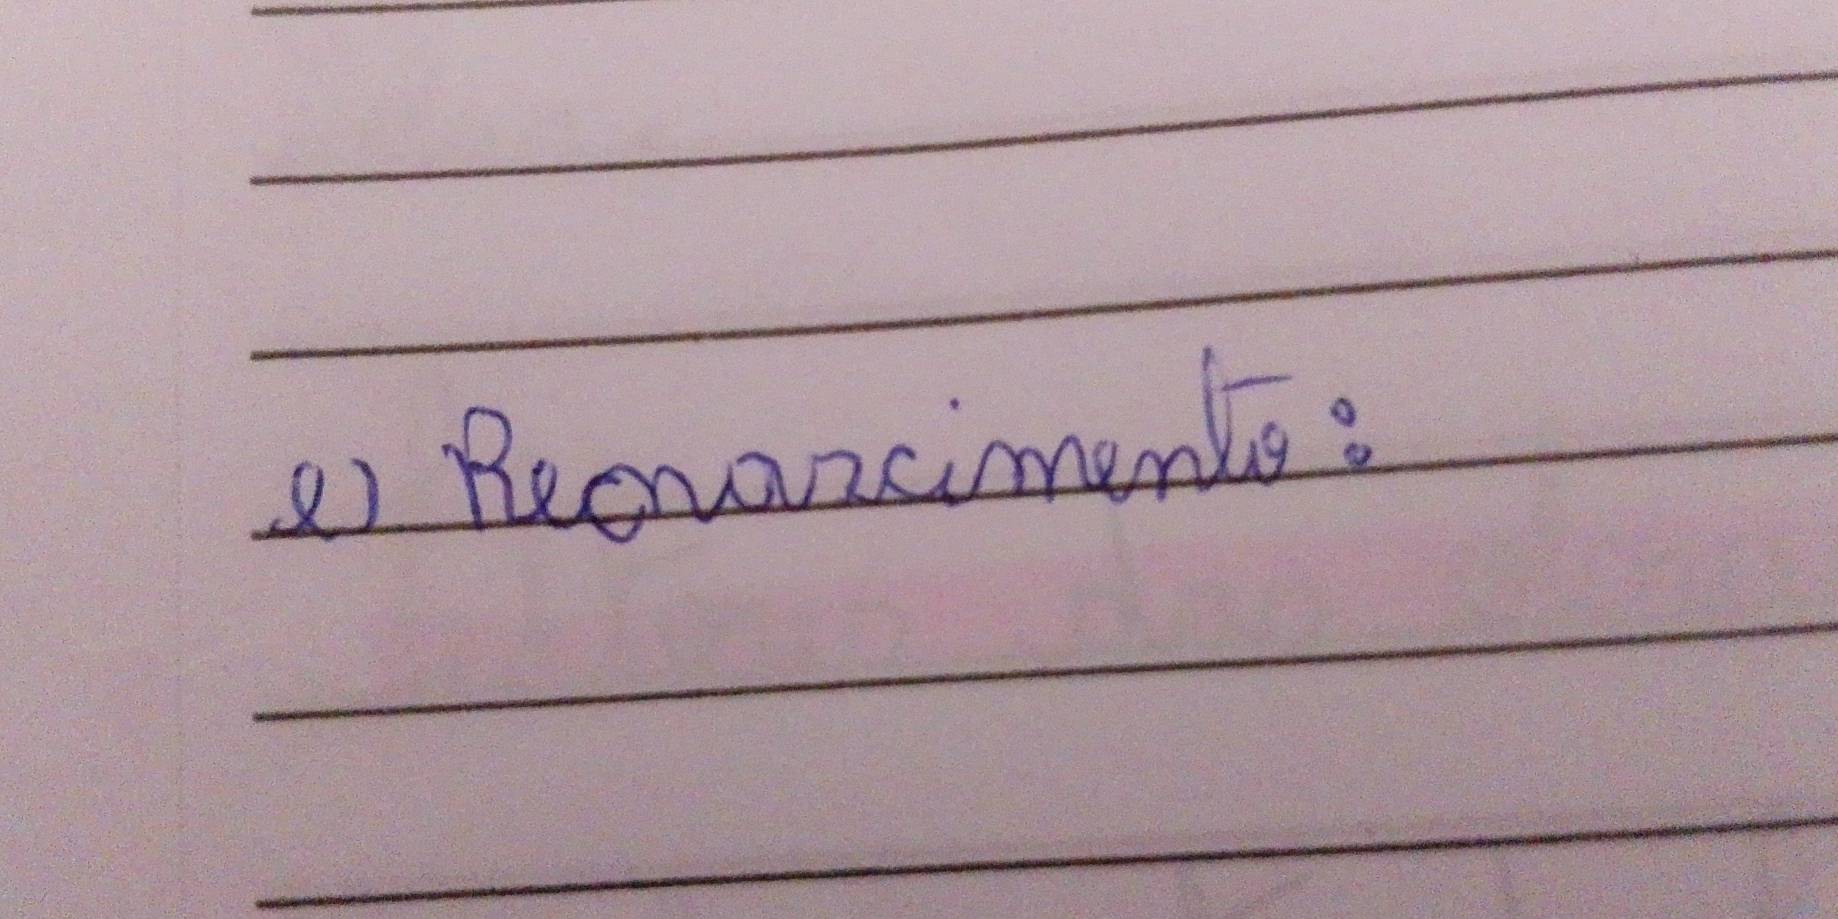 e) Renascimento: